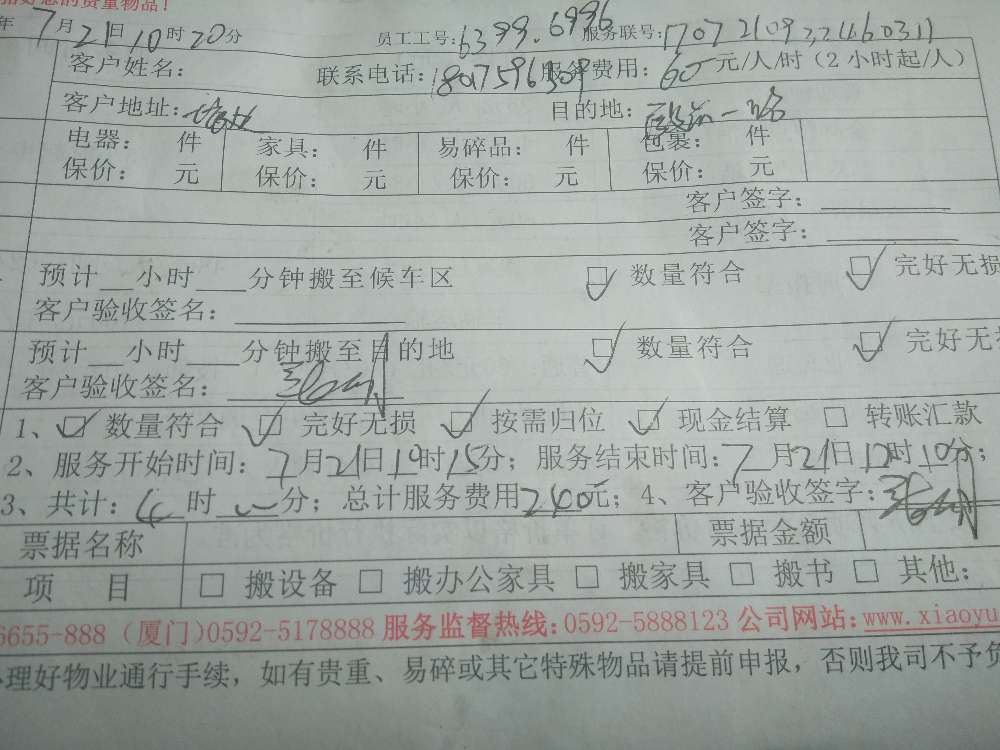 贵重物品！
年7月21日10时20分 员工工号：6399.6996 服务联号：
客户姓名： 联系电话： 服务费用：60元/人/时（2小时起/人）
客户地址： 目的地： 一路
电器： 件 家具： 件 易碎品： 件 包裹： 件
保价： 元 保价： 元 保价： 元 保价： 元
客户签字：
客户签字：
预计__小时___分钟搬至候车区 ☑ 数量符合 ☑ 完好无损
客户验收签名：
预计__小时___分钟搬至目的地 ☑ 数量符合 ☑ 完好无损
客户验收签名：
1、☑ 数量符合 ☑ 完好无损 ☑ 按需归位 ☑ 现金结算 □ 转账汇款
2、服务开始时间：7月21日10时15分；服务结束时间：7月21日12时10分；
3、共计：4时 分；总计服务费用240元；4、客户验收签字：
票据名称 票据金额
项 目 □ 搬设备 □ 搬办公家具 □ 搬家具 □ 搬书 □ 其他：
6655-888（厦门）0592-5178888 服务监督热线：0592-5888123 公司网站：www.xiaoyu
理好物业通行手续，如有贵重、易碎或其它特殊物品请提前申报，否则我司不予负